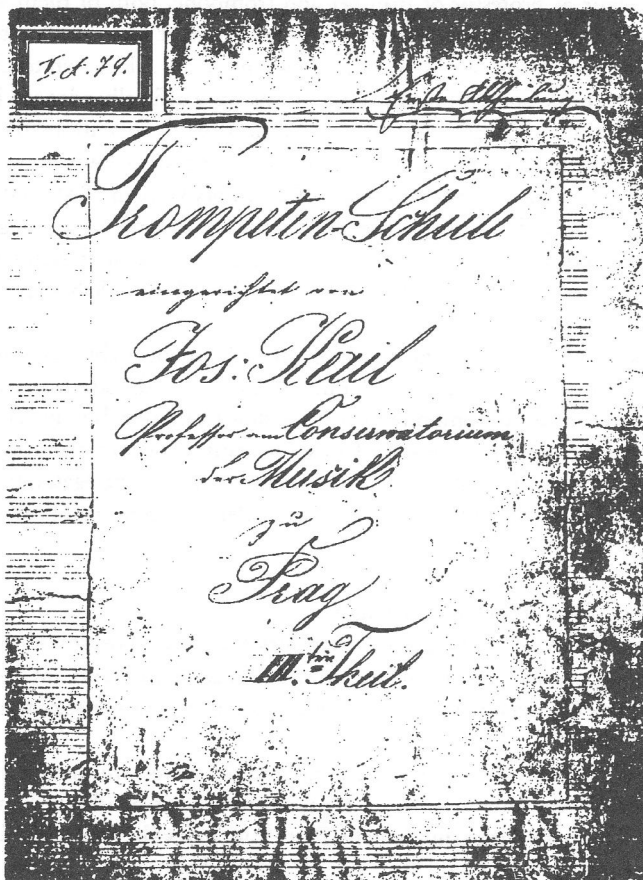 I. A. 79.
Erste Abtheilung
Trompeten-Schule
eingerichtet von
Jos: Kail
Professor am Conservatorium
der Musik
zu
Prag
III.ter Theil.